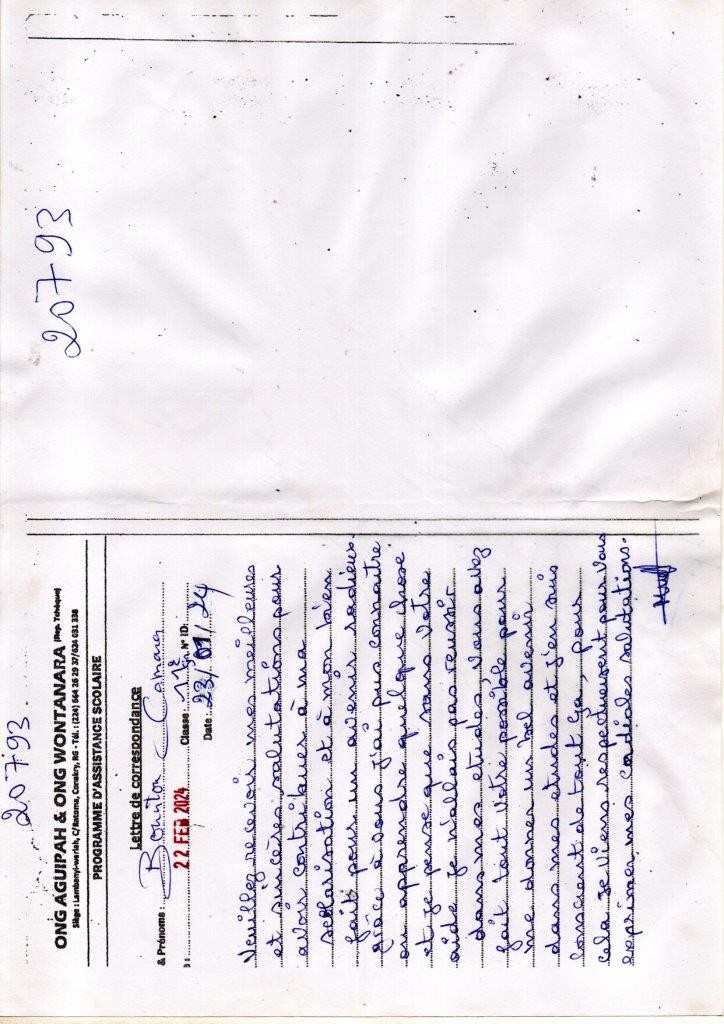 20793
20793
ONG AGUIPAH & ONG WONTANARA (Rep. Tchèque)
Siège : Lambanyi-warlah, C/Ratoma, Conakry, RG - Tél. : (224) 564 26 29 37/624 031 338
PROGRAMME D'ASSISTANCE SCOLAIRE
Lettre de correspondance
& Prénoms : Bountou Camara
22 FEB 2024 Classe : 11è N° ID:
Date : 23/01/24
Veuillez recevoir mes meilleures
et sincères salutations pour
avoir contribuer à ma
scolarisation et à mon bien
fait pour un avenir radieux.
grâce à vous j'ai pus connaitre
ou apprendre quelque chose
et je pense que sans votre
aide je n'allais pas reussir
dans mes etudes, vous avez
fait tout votre possible pour
me donner un bel avenir
dans mes etudes et j'en suis
conscient de tout ça, pour
cela je viens respectueusement pour vous
exprimer mes cordiales salutations.